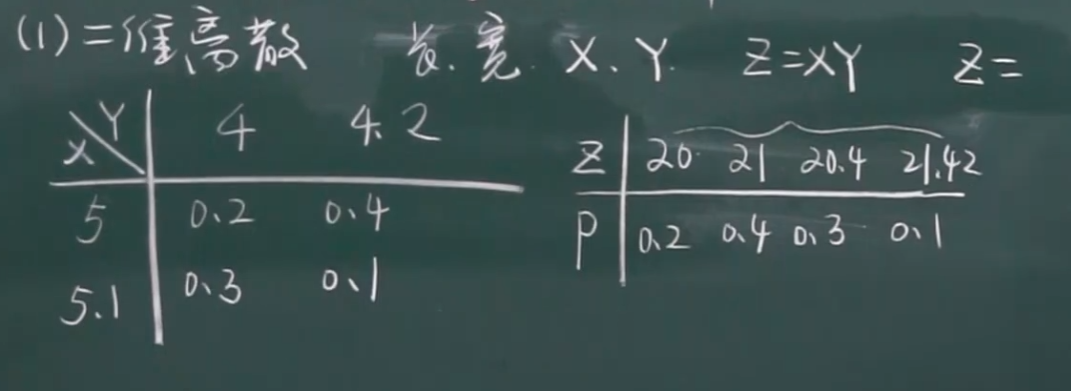 (1) 二维离散 长、宽. X、Y. Z=XY Z=
X Y 4 4.2
5 0.2 0.4
5.1 0.3 0.1
Z 20 21 20.4 21.42
P 0.2 0.4 0.3 0.1